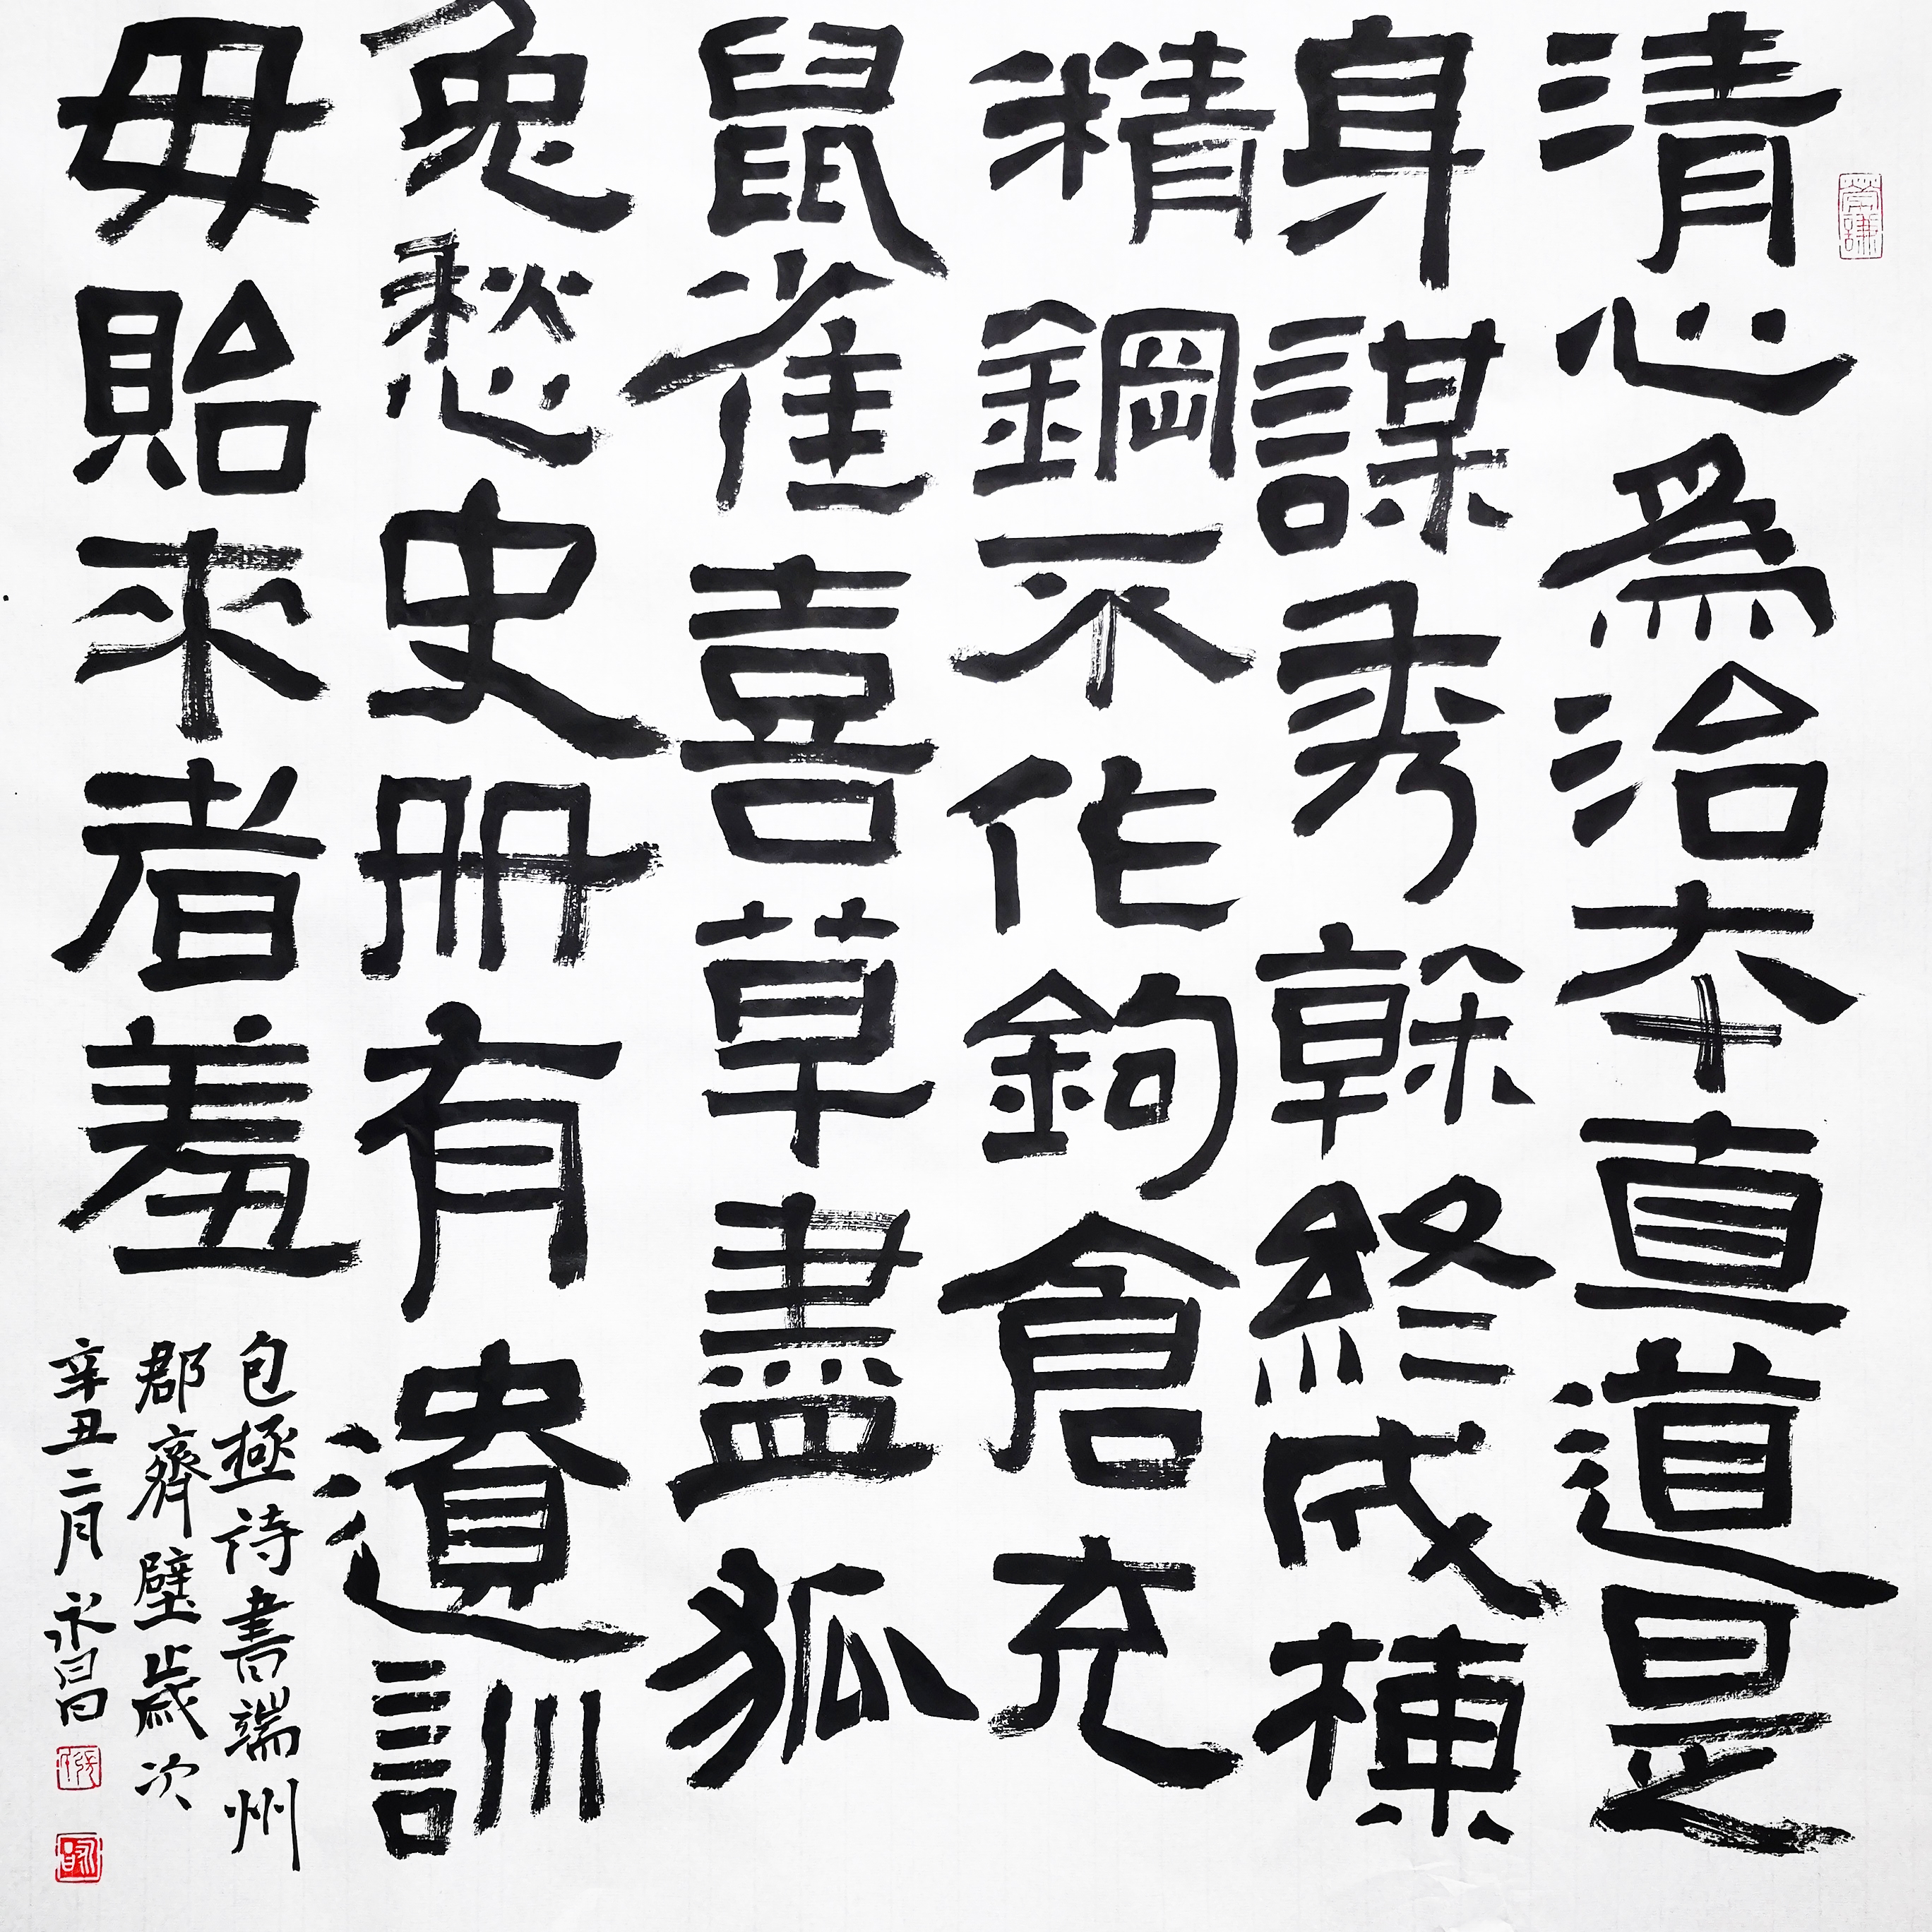 清心為治本直道是
身謀秀榦終成棟
精鋼不作鉤倉充
鼠雀喜草盡狐
兔愁史册有遺訓
毋貽來者羞
包極诗書端州
郡齋壁歲次
辛丑二月永昌